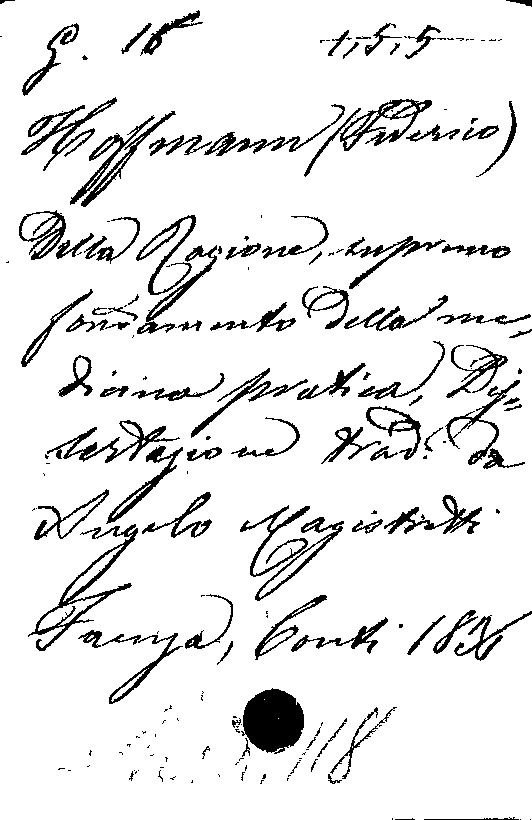 G. 16 1,5,5
Hoffmann (Federico)
Della Ragione, supremo
fondamento della me-
dicina pratica, Dis-
sertazione trad. da
Angelo Magistretti
Faenza, Conti 1836
118